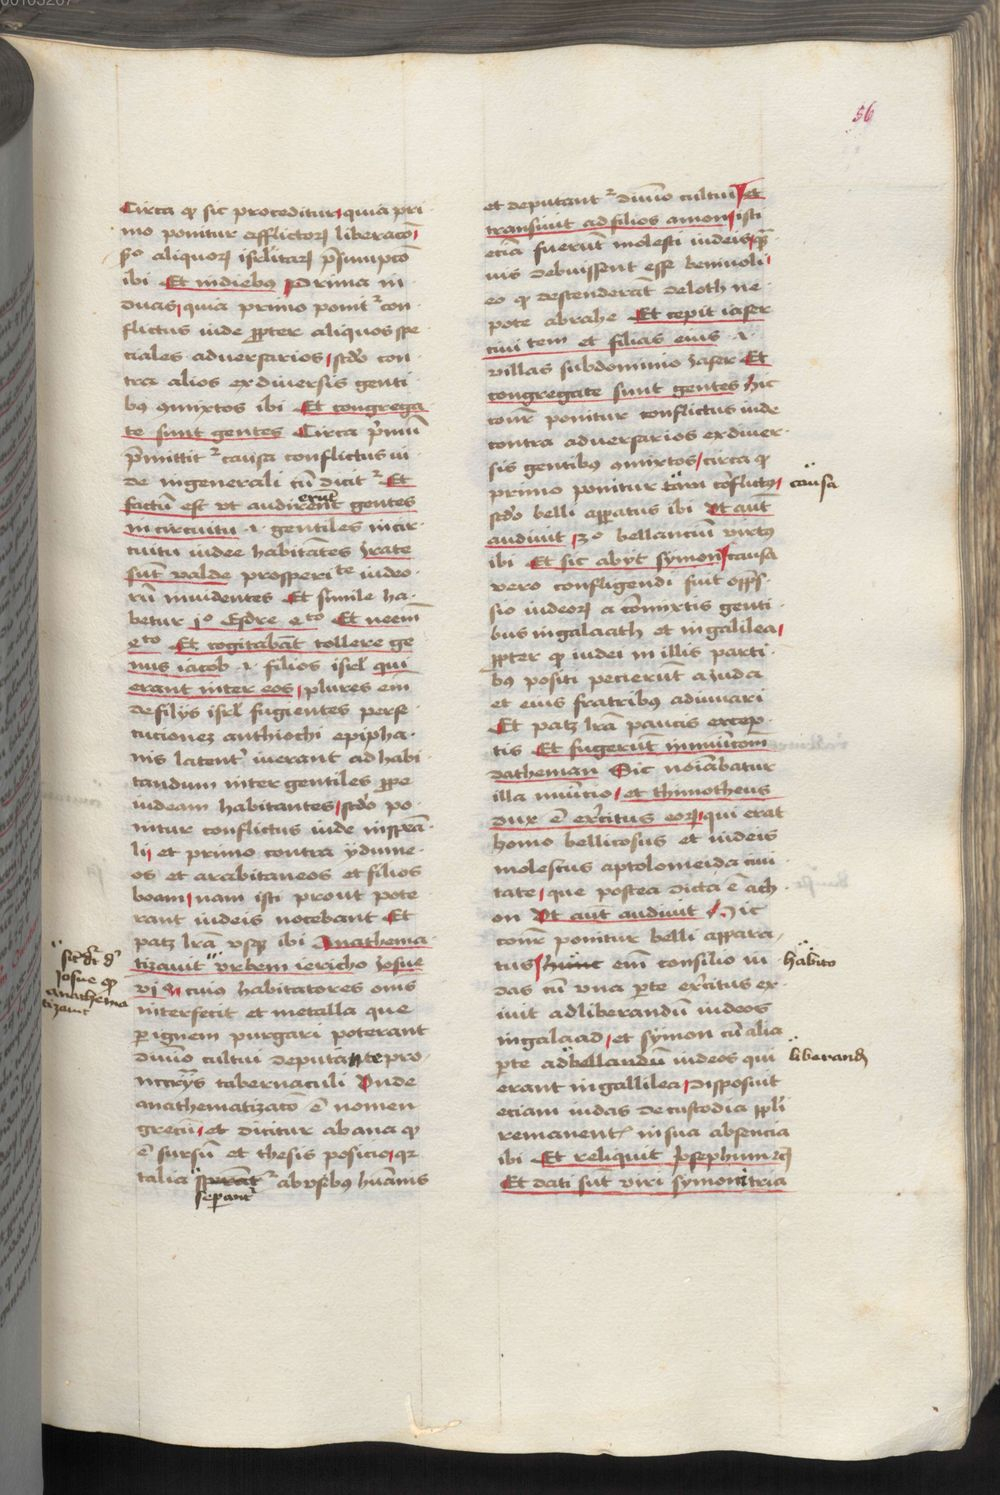 56
Circa qđ sic proceditur, quia pri
mo ponitur afflictoꝝ liberaco͞
s͞o aliquoꝝ isrl͞itaꝝ p͞sumpco͞
ibi Et in diebus Prima in
duas, quia primo ponit᷑ con
flictus iude ꝓpter aliquos spe
ciales adversarios, scd͞o con
tra alios ex diversis genti
bꝫ ꝯmixtos ibi Et congrega
te sunt gentes Circa p͞mu͞
p͞mittit᷑ causa conflictus iu
de in generali cu͞ dicit᷑ Et
factu͞ est vt audirent gentes
erut
in circuitu .i. gentiles in cir
cuitu iudee habita͞tes Irate
su͞t valde prosperi te iudeo
ru͞ invidentes Et simile ha
betur jo Esdre eto Et neem͞
eto Et cogitaba͞t tollere ge
nus iacob .i. filios isrl qui
erant inter eos, plures em͞
de filijs isrl fugientes perse
cucionez anthiochi epipha
nis latent᷑ iverant ad habi
tandum inter gentiles ꝓpe
iudeam habitantes, scd͞o po
nitur conflictus iude in sp͞ca
li, et primo contra ydume
os et arabitaneos et filios
boam, nam isti prout pote
rant iudeis nocebant Et
patꝫ lr͞a vsqꝫ ibi Anathema
tizavit vrbem iericho Josue
vj cuiꝰ habitatores om͞s
interfecit et metalla que
ꝑ ignem purgari poterant
divi͞o cultui deputante pro
tabernaculi Unde
anathematizaco͞ e͞ nomen
grecu͞, et dicitur ab ana qđ
e͞ sursu͞ et thesis posicio, qꝛ
talia sperant᷑ ab vsibꝫ hu͞anis
separant᷑
Josue qđ
anathema
tizavit
et deputant᷑ divi͞o cultui, et
transivit ad filios amon, isti
ecia͞ fueru͞t molesti iudeis, q͞ꝫ
vis debuissent esse benivoli,
eo qđ descendera͞t de loth ne
pote abrahe Et cepit iaser
civi tem et filias eius .i.
villas sub dominio Jaser Et
congregate sunt gentes hic
conr͞ ponitur conflictus iude
contra adversarios ex diver
sis gentibꝫ ꝯmixtos, circa qđ
primo ponitur tam co͞flictꝰ,
causa
scd͞o belli apparatus ibi Ut aut͞
audivit, 3o bellanciu͞ virtꝰ
ibi Et sic abijt symon, causa
vero confligendi fuit opp͞s
sio iudeoꝝ a co͞mixtis genti
bus in galaath et in galilea,
ꝓpter qđ iudei in illis parti
bꝫ positi pecieru͞t a Juda
et eius fratribus adiuvari
Et patꝫ lr͞a paucis excep
tis Et fugeru͞t in municom͞
datheman Sic no͞iabatur
illa municio, et thimotheus
dux e͞ exercitus eoꝝ, qui erat
homo bellicosus et iudeis
molestus a ptolomeida civi
tate, que postea dicta e͞ ach
on Ut aut͞ audivit hic
conr͞ ponitur belli appara
tus, hunc em͞ consilio iu
habito
das cu͞ vna parte exercitus ex
ivit ad liberandu͞ iudeos
in galaad, et symon cu͞ alia
parte ad bellandu͞ iudeos qui
liberand
erant in gallilea, disposuit
eciam iudas de custodia ppl͞i
remanent᷑ in sua absencia
ibi Et reliquit Josephum
Et dati su͞t viri symoni tria